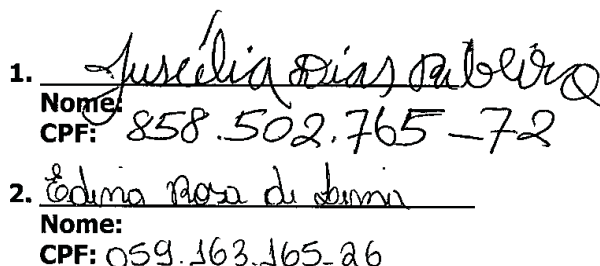 1. Juscélia Dias Ribeiro
Nome:
CPF: 858.502.765-72
2. Edima Rosa de
Nome:
CPF: 059.163.165-26